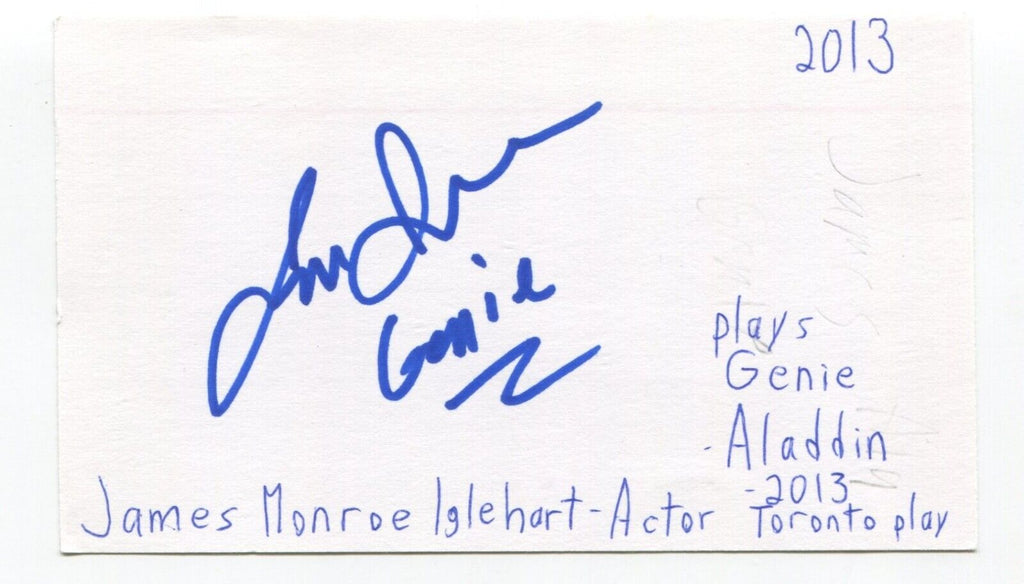 2013
Genie
plays
Genie
- Aladdin
- 2013
James Monroe Iglehart - Actor Toronto play